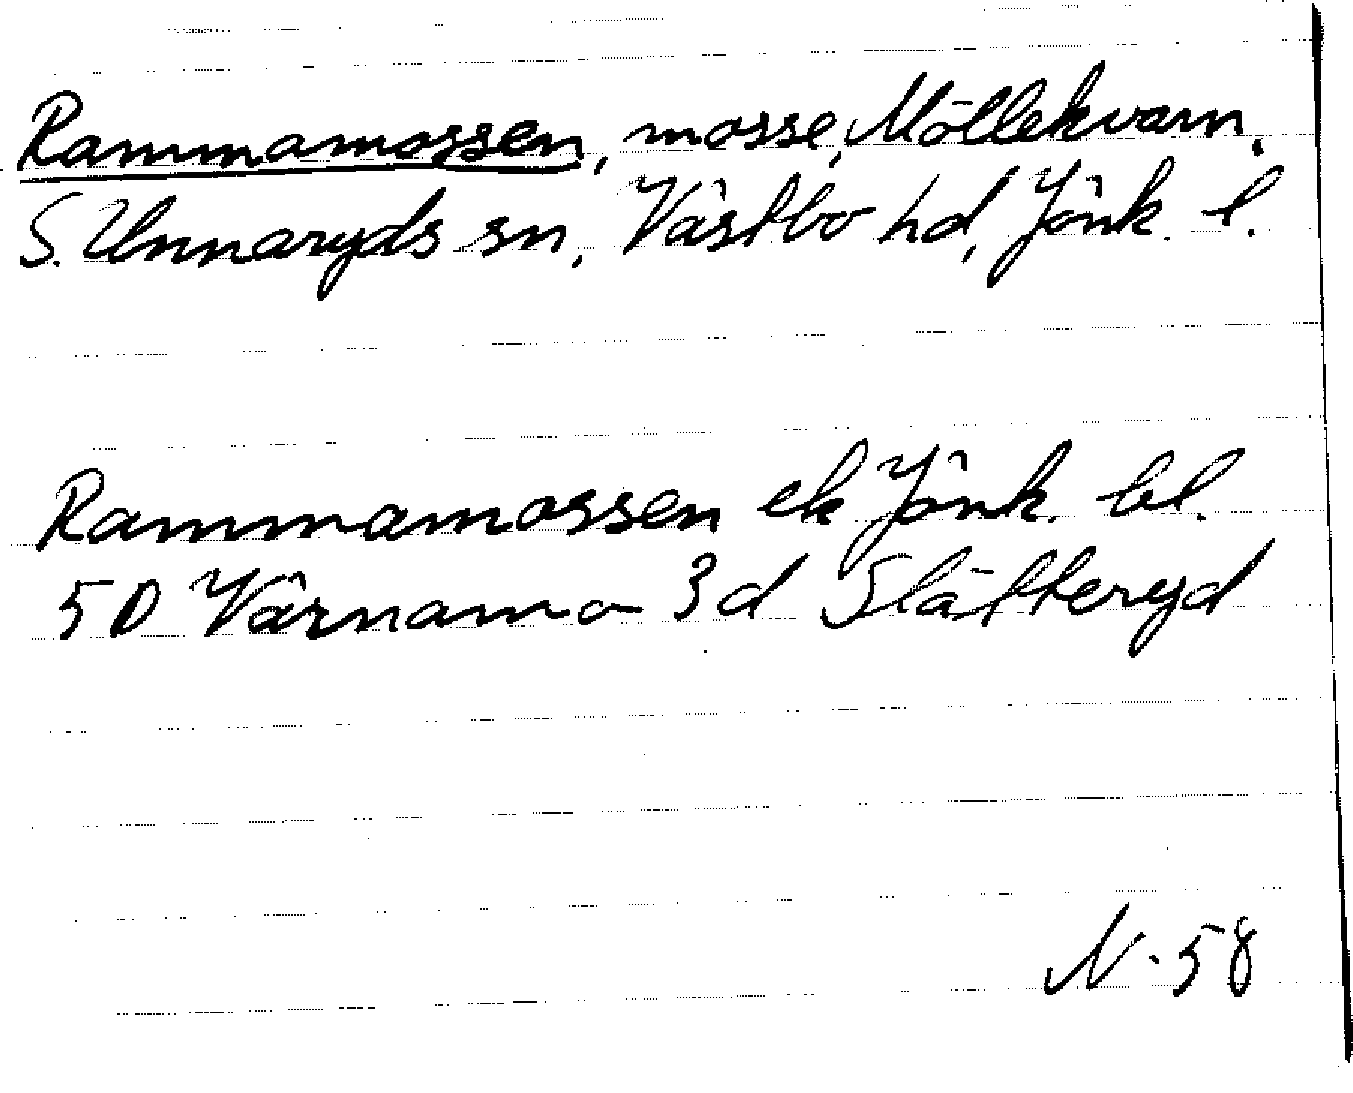 Rammamossen, mosse, Möllekvarn.
S. Unnaryds sn, Västbo hd, Jönk. l.
Rammamossen ek Jönk. bl.
5D Värnamo 3d Slätteryd
N. 58